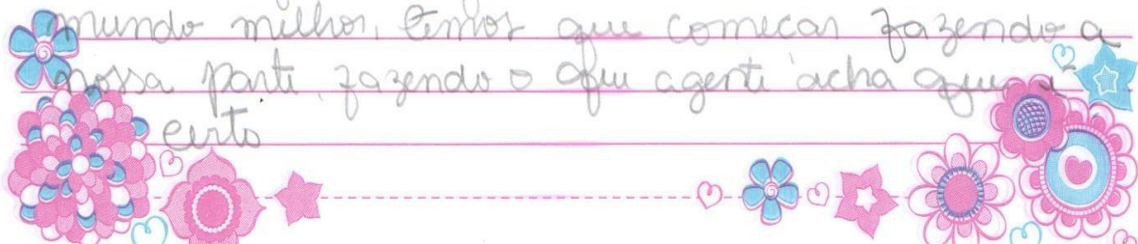 mundo milhor, temos que comecar fazendo a
nossa parti, fazendo o que agenti acha que é
certo